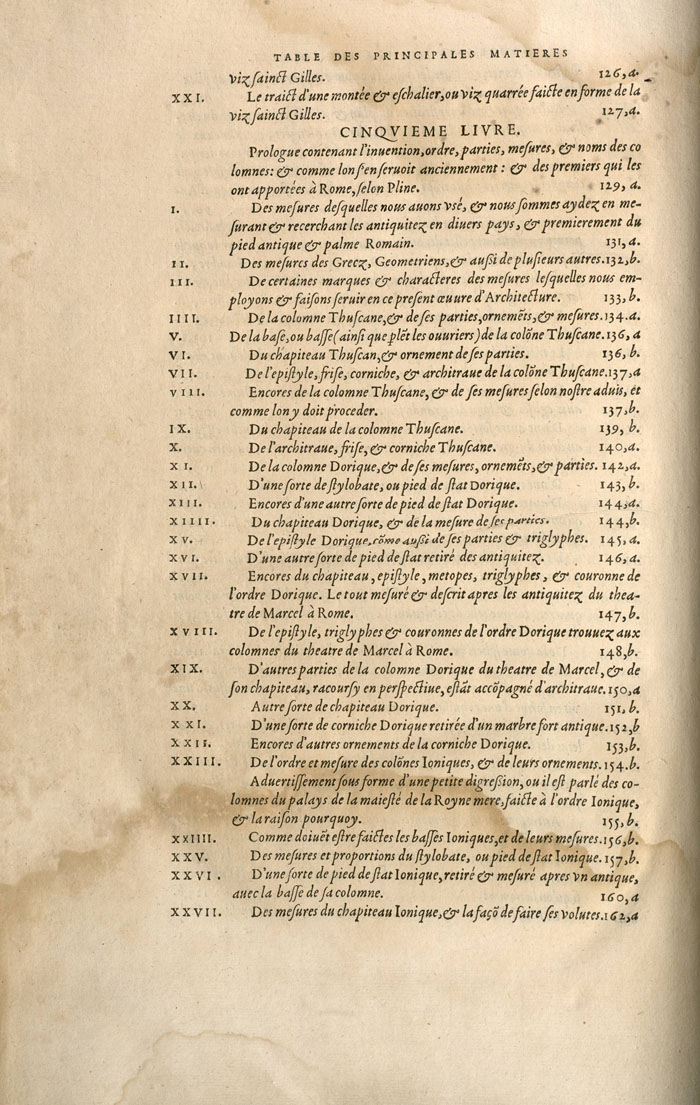 TABLE DES PRINCIPALES MATIERES
viz sainct Gilles. 126,a.
XXI. Le traict d'une montée & eschalier, ou viz quarrée faicte en forme de la
viz sainct Gilles. 127,a.
CINQVIEME LIVRE.
Prologue contenant l'inuention, ordre, parties, mesures, & noms des co
lomnes: & comme lon s'en seruoit anciennement : & des premiers qui les
ont apportées à Rome, selon Pline. 129, a.
I. Des mesures desquelles nous auons vsé, & nous sommes aydez en me-
surant & recerchant les antiquitez en diuers pays, & premierement du
pied antique & palme Romain. 131,a.
II. Des mesures des Grecz, Geometriens, & außi de plusieurs autres. 132,b.
III. De certaines marques & characteres des mesures lesquelles nous em-
ployons & faisons seruir en ce present œuure d'Architecture. 133, b.
IIII. De la colomne Thuscane, & de ses parties, ornemẽts, & mesures. 134.a.
V. De la base, ou basse (ainsi que plẽt les ouuriers) de la colõne Thuscane. 136, a
VI. Du chapiteau Thuscan, & ornement de ses parties. 136, b.
VII. De l'epistyle, frise, corniche, & architraue de la colõne Thuscane. 137,a
VIII. Encores de la colomne Thuscane, & de ses mesures selon nostre aduis, et
comme lon y doit proceder. 137,b.
IX. Du chapiteau de la colomne Thuscane. 139, b.
X. De l'architraue, frise, & corniche Thuscane. 140,a.
XI. De la colomne Dorique, & de ses mesures, ornemẽts, & parties. 142,a.
XII. D'une sorte de stylobate, ou pied de stat Dorique. 143, b.
XIII. Encores d'une autre sorte de pied de stat Dorique. 144,a.
XIIIII. Du chapiteau Dorique, & de la mesure de ses parties. 144,b.
XV. De l'epistyle Dorique, cõme außi de ses parties & triglyphes. 145, a.
XVI. D'une autre sorte de pied de stat retiré des antiquitez. 146,a.
XVII. Encores du chapiteau, epistyle, metopes, triglyphes, & couronne de
l'ordre Dorique. Le tout mesuré & descrit apres les antiquitez du thea-
tre de Marcel à Rome. 147,b.
XVIII. De l'epistyle, triglyphes & couronnes de l'ordre Dorique trouuez aux
colomnes du theatre de Marcel à Rome. 148,b.
XIX. D'autres parties de la colomne Dorique du theatre de Marcel, & de
son chapiteau, racoursy en perspectiue, estãt accõpagné d'architraue. 150,a
XX. Autre sorte de chapiteau Dorique. 151, b.
XXI. D'une sorte de corniche Dorique retirée d'un marbre fort antique. 152,b
XXII. Encores d'autres ornements de la corniche Dorique. 153,b.
XXIII. De l'ordre et mesure des colõnes Ioniques, & de leurs ornements. 154.b.
Aduertissement sous forme d'une petite digreßion, ou il est parlé des co-
lomnes du palays de la maiesté de la Royne mere, faicte à l'ordre Ionique,
& la raison pourquoy. 155,b.
XXIIII. Comme doiuẽt estre faictes les basses Ioniques, et de leurs mesures. 156,b.
XXV. Des mesures et proportions du stylobate, ou pied de stat Ionique. 157,b.
XXVI. D'une sorte de pied de stat Ionique, retiré & mesuré apres vn antique,
auec la basse de sa colomne. 160,a
XXVII. Des mesures du chapiteau Ionique, & la façõ de faire ses volutes. 162,a